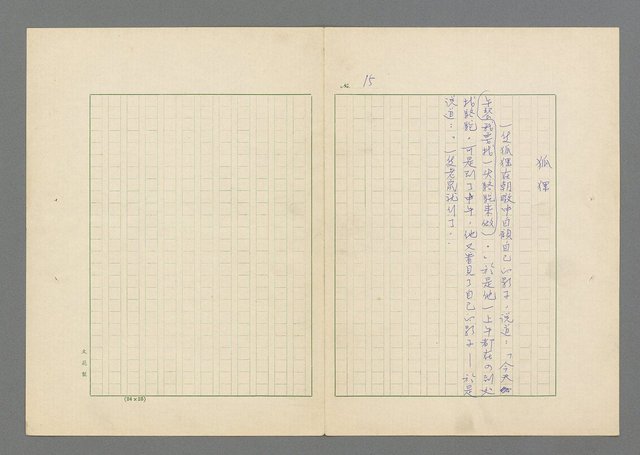 № 15
狐狸
一隻狐狸在朝暾中自顧自己的影子,說道:「今天
午餐我要找一 駱駝來做)。」於是他一上午都在
找駱駝。可是到了中午,他又看見了自己的影子—於是
說道:「一隻老鼠就 了。」
文苑製
(24×25)